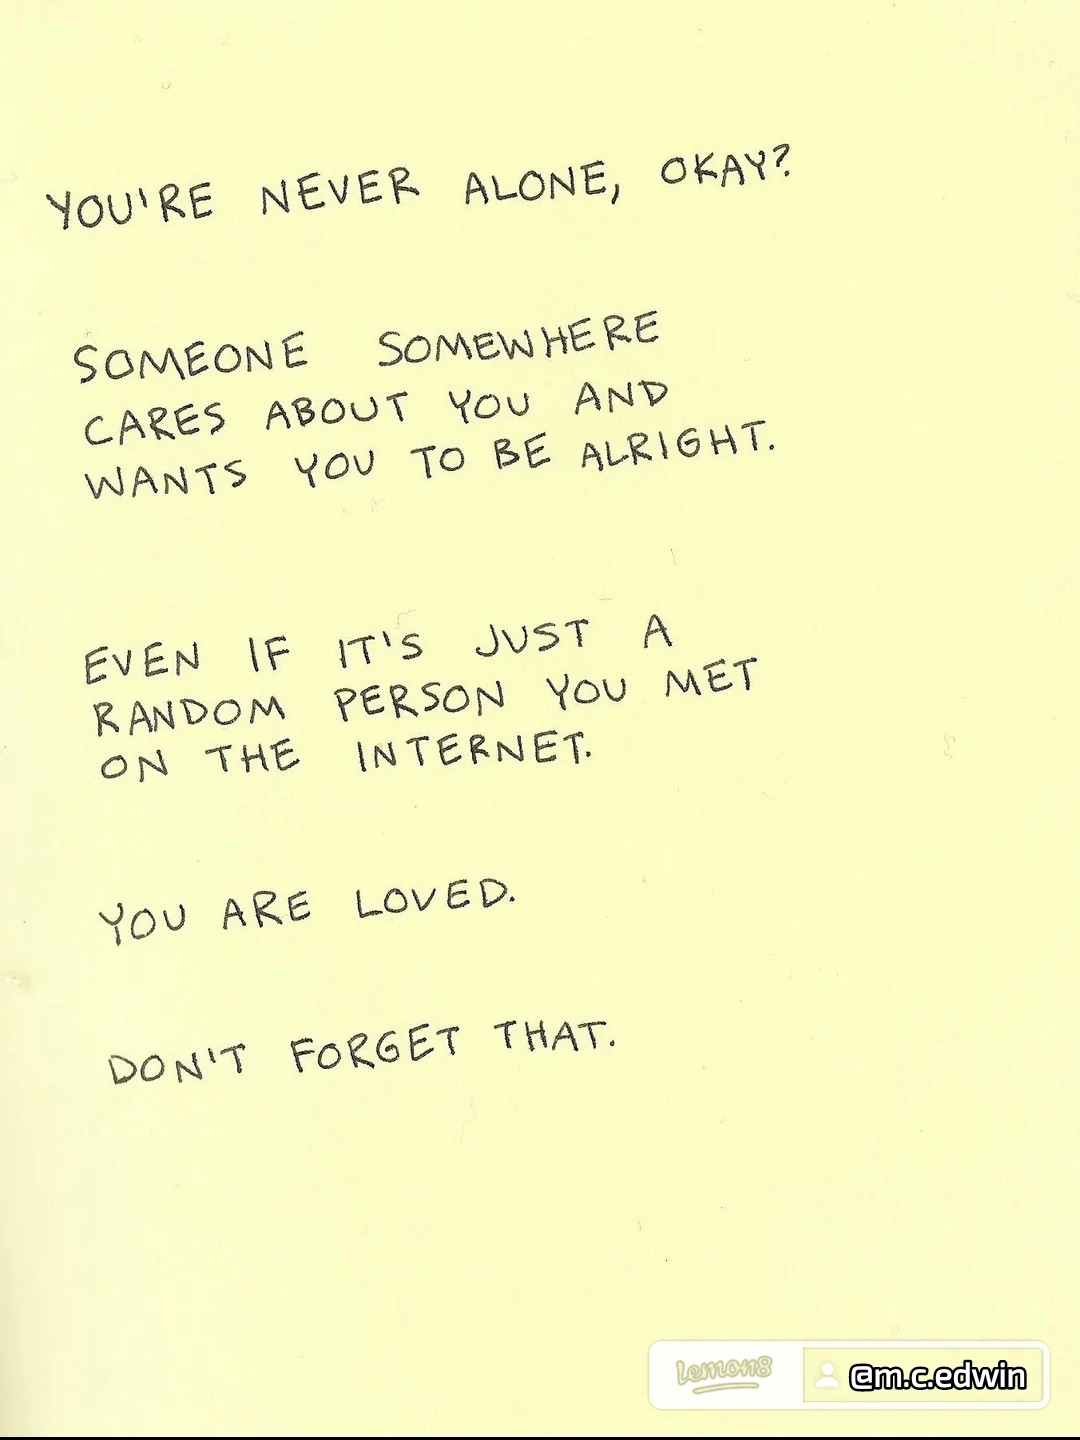 YOU'RE NEVER ALONE, OKAY?
SOMEONE SOMEWHERE
CARES ABOUT YOU AND
WANTS YOU TO BE ALRIGHT.
EVEN IF IT'S JUST A
RANDOM PERSON YOU MET
ON THE INTERNET.
YOU ARE LOVED.
DON'T FORGET THAT.
lemon8
@m.c.edwin